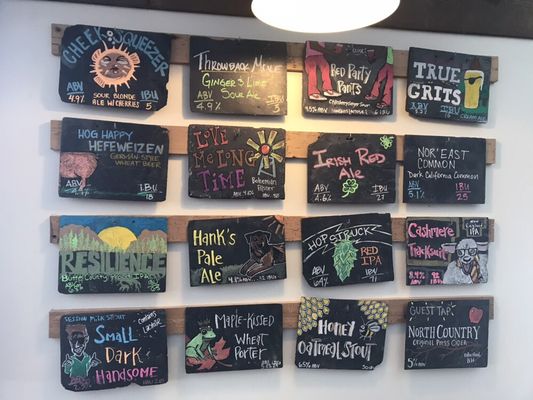 CHEEK SQUEEZER
ABV
4.9%
SOUR BLONDE
ALE W/ CHERRIES
IBU
5
THROWBACK MULE
GINGER & LIME
SOUR ALE
ABV
4.9%
IBU
RED PARTY
PANTS
TRUE
GRITS
ABV
IBU
CREAM ALE
HOG HAPPY
HEFEWEIZEN
GERMAN STYLE
WHEAT BEER
ABV
IBU
LOVE
ME LONG
TIME
Bohemian
Pilsner
IRISH RED
ALE
ABV
4.6%
IBU
27
NOR' EAST
COMMON
Dark California Common
ABV
5.1%
IBU
25
RESILIENCE
Butte County Proud IPA
HANK'S
PALE
ALE
HOPSTRUCK
RED
IPA
ABV
IBU
CASHMERE
TRACKSUIT
IPA
RUSSIAN MILK STOUT
Contains
Lactose
SMALL
DARK
HANDSOME
MAPLE-KISSED
WHEAT
PORTER
HONEY
OATMEAL STOUT
GUEST TAP
NORTH COUNTRY
ORIGINAL PRESS CIDER
ABV